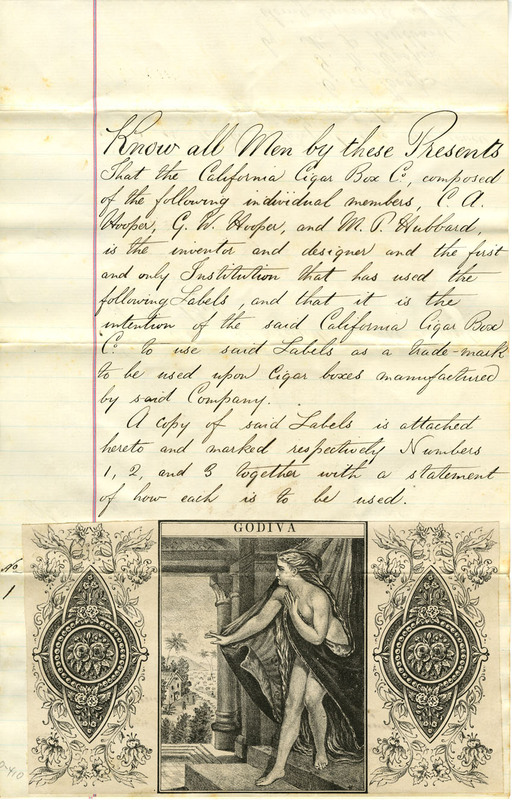 Know all Men by these Presents
That the California Cigar Box Co, composed
of the following individual members, C. A.
Hooper, G. W. Hooper, and M. P. Hubbard,
is the inventor and designer and the first
and only Institution that has used the
following Labels, and that it is the
intention of the said California Cigar Box
Co. to use said Labels as a trade-mark
to be used upon Cigar boxes manufactured
by said Company.
A copy of said Labels is attached
hereto and marked respectively Numbers
1, 2, and 3 together with a statement
of how each is to be used.
GODIVA
No
1